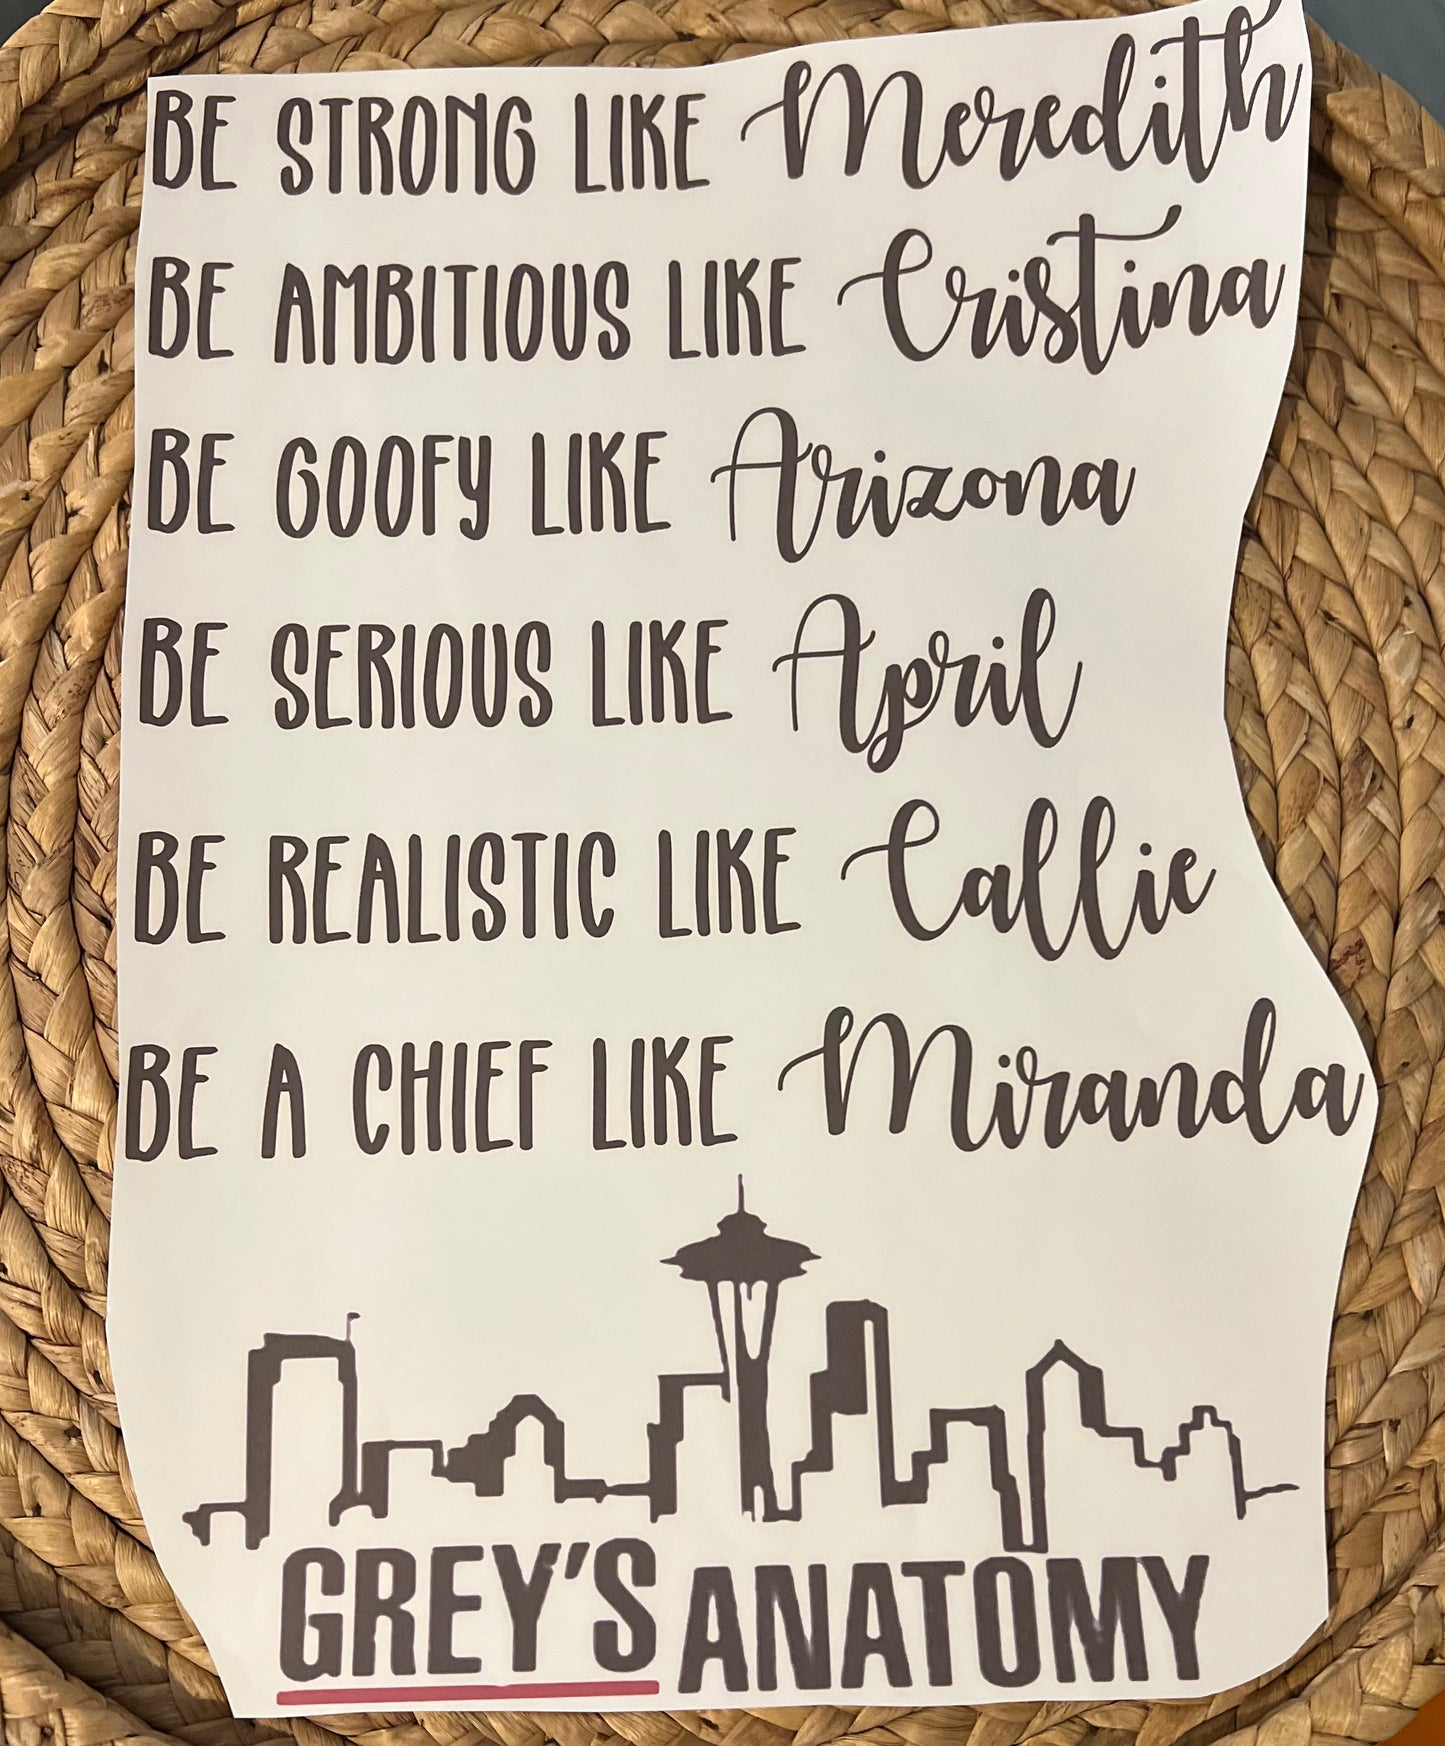 BE STRONG LIKE Meredith
BE AMBITIOUS LIKE Cristina
BE GOOFY LIKE Arizona
BE SERIOUS LIKE April
BE REALISTIC LIKE Callie
BE A CHIEF LIKE Miranda
GREY'S ANATOMY